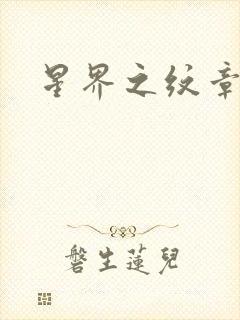 星界之纹章
磐生莲兒